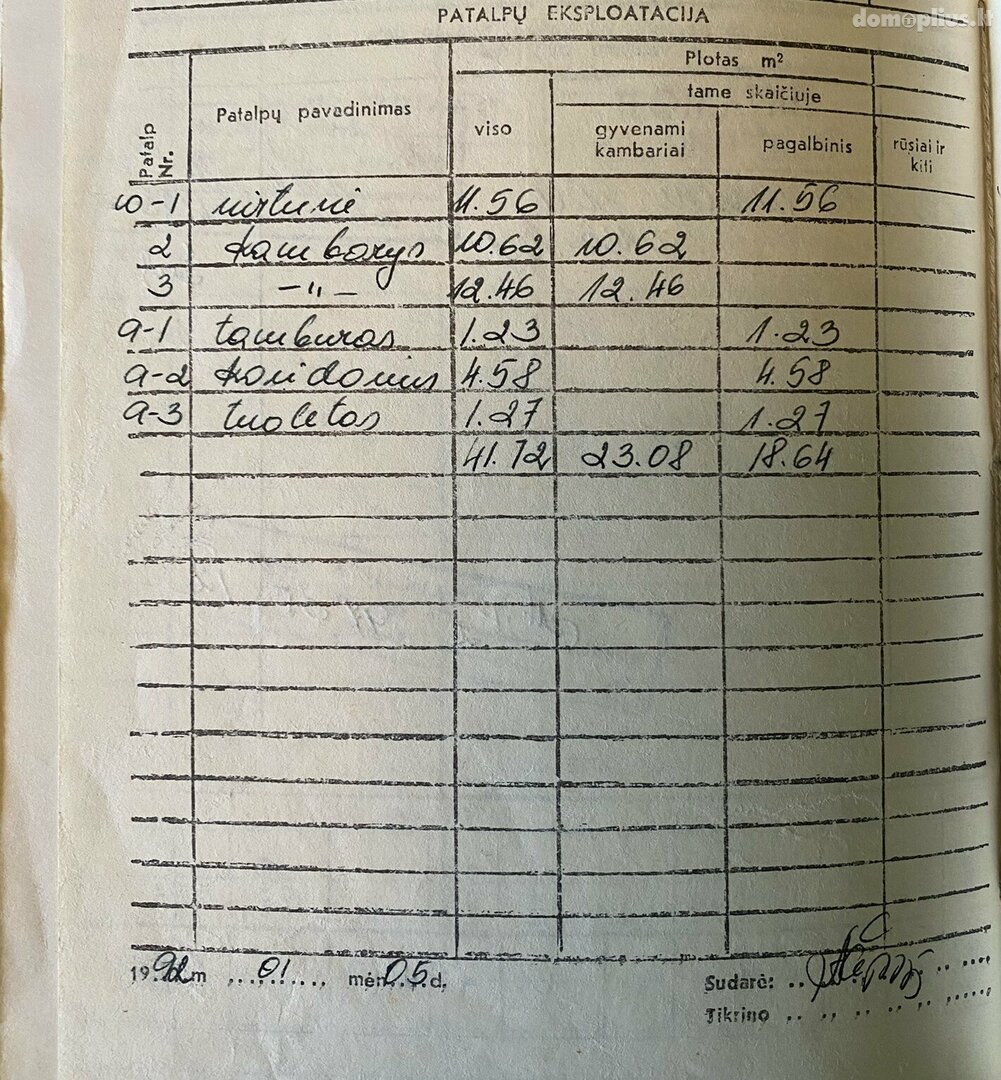 domoplius.lt
PATALPŲ EKSPLOATACIJA
Patalp Nr.
Patalpų pavadinimas
Plotas m²
tame skaičiuje
viso
gyvenami kambariai
pagalbinis
rūsiai ir kiti
10-1 virtuvė 11.56 11.56
2 kambarys 10.62 10.62
3 -"- 12.46 12.46
a-1 tamburas 1.23 1.23
a-2 koridorius 4.58 4.58
a-3 tualetas 1.27 1.27
41.72 23.08 18.64
1992 m 01 mėn 05 d.
Sudarė:
Tikrino